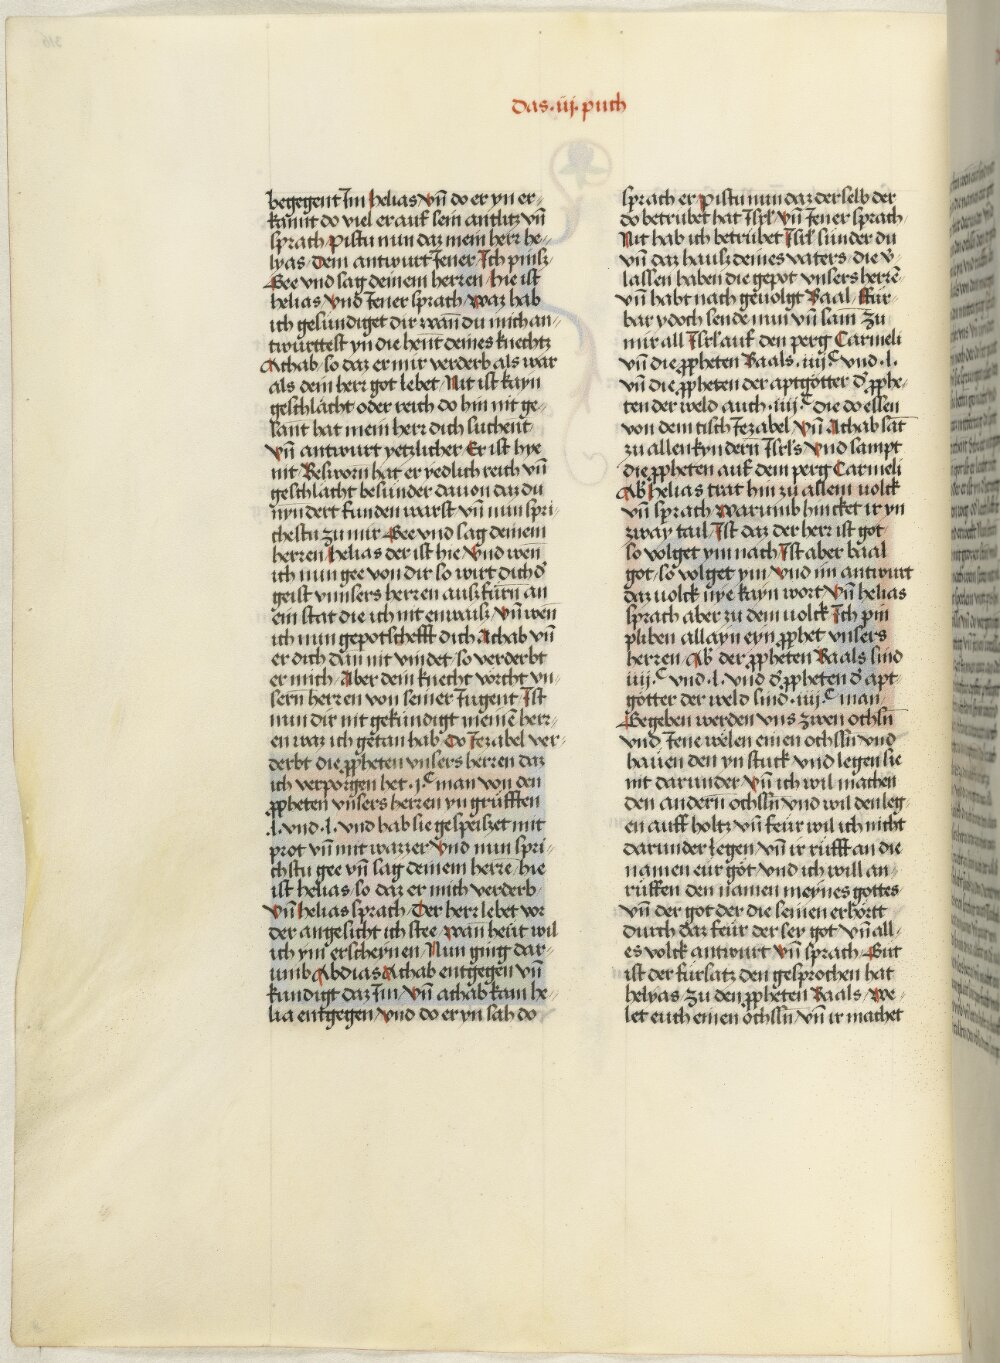 Das .iij. puch
begegent Im helias Vn̄ do er yn er-
kannt do viel er auf sein antlitz vn̄
sprach Pistu nun daz mein herr he-
lyas Dem antwurt Jener Ich pinsz
Gee vnd sag deinem herren Hie ist
helias Vnd Jener sprach Waz hab
ich gesundiget dir wan̄ du mich an-
twurttest yn die hent deines knechtz
Achab so daz er mir verderb als war
als dein herr got lebet Nit ist kayn
geschlächt oder reich do hin nit ge-
sant hat mein herr dich suchent
Vn̄ antwurt yetzlicher Er ist hye
nit Besworn hat er yedlich reich vn̄
geschlächt besunder dauon daz du
nyndert funden warst vn̄ nun spri-
chestu zu mir Gee vnd sag deinem
herren helias der ist hie Vnd wen
ich nun gee von dir so wirt dich d̄
geist vnnsers herren ausz fürn an
ein stat die ich nit enwaisz Vn̄ wen
ich nun gepotschefft dich Achab vn̄
er dich dan̄ nit vindet so verderbt
er mich Aber dein knecht vörcht vn-
sern̄ herren von seiner Jugent Ist
nun dir nit gekündigt meinē herr-
en waz ich getan hab Do Jezabel ver-
derbt die ꝓpheten vnsers herren daz
ich verporgen het .j.C man von den
ꝓpheten vnsers herren yn grüfften
.l. vnd .l. vnd hab sie gespeiszet mit
prot vn̄ mit wazzer Vnd nun spri-
chstu gee vn̄ sag deinem herrē hie
ist helias so daz er mich verderb
Vn̄ helias sprach Der herr lebet vor
der angesicht ich stee wan̄ heut wil
ich ym erscheynen Nun ging dar-
umb Abdias Achab entgegen vn̄
kundigt daz Im Vn̄ achab kam he-
lia entgegen Vnd do er yn sah do
sprach er Pistu nun daz der selb der
do betrubet hat Isrl̄ Vn̄ Jener sprach
Nit hab ich betrübet Isrl̄ sunder du
vn̄ daz hausz deines vaters die v̄-
lassen haben die gepot vnsers herrē
vn̄ habt nach geuolgt Baal Für-
bar ydoch sende nun vn̄ sam zu
mir all Isrl̄ auf den perg Carmeli
vn̄ die ꝓpheten Baals .iiij.C vnd .l.
vn̄ die ꝓpheten der aptgötter d̄ ꝓphe-
ten der weld auch .iiij.C die do essen
von dem tisch Jezabel Vn̄ Achab sāt
zu allen kyndern̄ Isrl̄s Vnd sampt
die ꝓpheten auf dem perg Carmeli
Ab̄ helias trat hin zu allem uolck
vn̄ sprach Warumb hincket ir yn
zway tail Ist daz der herr ist got
so volget ym nach Ist aber baal
got so volget ym Vnd im antwurt
daz uolck nye kayn wort Vn̄ helias
sprach aber zu dem uolck Ich pin
pliben allayn eyn ꝓphet vnsers
herren Ab̄ der ꝓpheten Baals sind
iiij.C vnd .l. vnd d̄ ꝓpheten d̄ apt-
götter der weld sind .iiij.C man
Gegeben werden vns zwen ochsn̄
vnd Jene welen einen ochsn̄ vnd
hauen den yn stuck vnd legen sie
nit darunder Vn̄ ich wil machen
den andern ochsn̄ vnd wil den leg-
en auff holtz vn̄ feur wil ich nicht
darunder legen Vn̄ ir rüfft an die
namen eür göt vnd ich will an-
rüffen den namen meynes gottes
Vn̄ der got der die seinen erhörtt
durch daz feür der sey got Vn̄ all-
es volck antwurt Vn̄ sprach Gut
ist der fürsatz den gesprochen hat
helyas Zu den ꝓpheten Baals We-
let euch einen öchsn̄ vn̄ ir machet